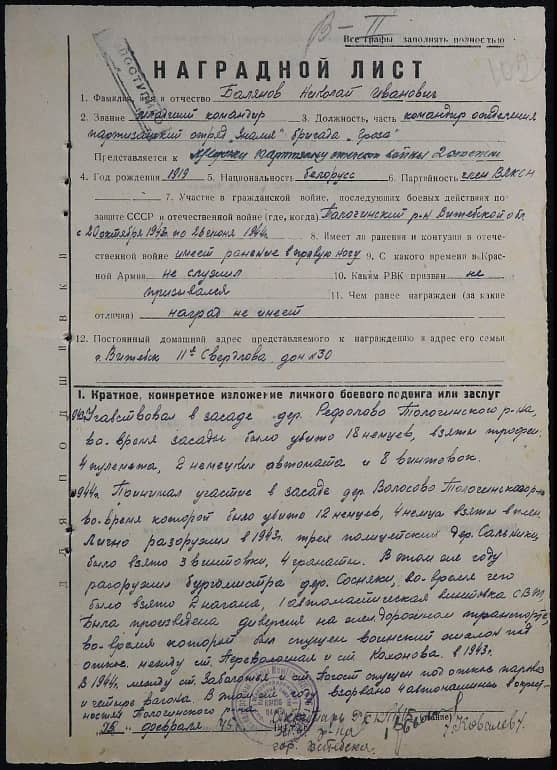 В-II
Все графы заполнять полностью
НАГРАДНОЙ ЛИСТ
1. Фамилия, имя и отчество Балянов Николай Иванович
2. Звание младший командир 3. Должность, часть командир отделения
партизанский отряд "Знамя" бригада "Гроза"
Представляется к медали Партизану отечеств. войны 2 степени
4. Год рождения 1919 5. Национальность белорусс 6. Партийность член ВЛКСМ
7. Участие в гражданской войне, последующих боевых действиях по
защите СССР и отечественной войне (где, когда) Толочинский р-н Витебской обл.
с 20 октября 1942 г. по 26 июня 1944 г. 8. Имеет ли ранения и контузии в отече-
ственной войне имеет ранение в правую ногу 9. С какого времени в Крас-
ной Армии не служил 10. Каким РВК призван не
призывался 11. Чем ранее награжден (за какие
отличия) наград не имеет
12. Постоянный домашний адрес представляемого к награждению и адрес его семьи
г. Витебск 11я Свердлова дом №30
ДЛЯ ПОДШИВКИ
I. Краткое, конкретное изложение личного боевого подвига или заслуг
Участвовал в засаде дер. Рафолово Толочинского р-на,
во-время засады было убито 18 немцев, взяты трофеи:
4 пулемета, 2 немецких автомата и 8 винтовок.
1944г. Принимал участие в засаде дер. Волосово Толочинского р-на
во-время которой было убито 12 немцев, 4 немца взяты в плен.
Лично разоружил в 1943г. трех полицейских дер. Сальники,
было взято 3 винтовки, 4 гранаты. В этом же году
разоружил бургомистра дер. Сосняки, во-время чего
было взято 2 нагана, 1 автоматическая винтовка СВТ.
Была произведена диверсия на жел.дорожном транспорте,
во-время которой был спущен воинский эшелон под
откос между ст. Переволочная и ст. Коханова в 1943г.
В 1944г. между ст. Заболотье и ст. Погост спущен под откос паровоз
и четыре вагона. В этом же году взорвано 4 автомашины в окрест-
ностях Толочинского р-на
25 февраля 45 г. Секретарь РК
гор. Витебска Ковалев